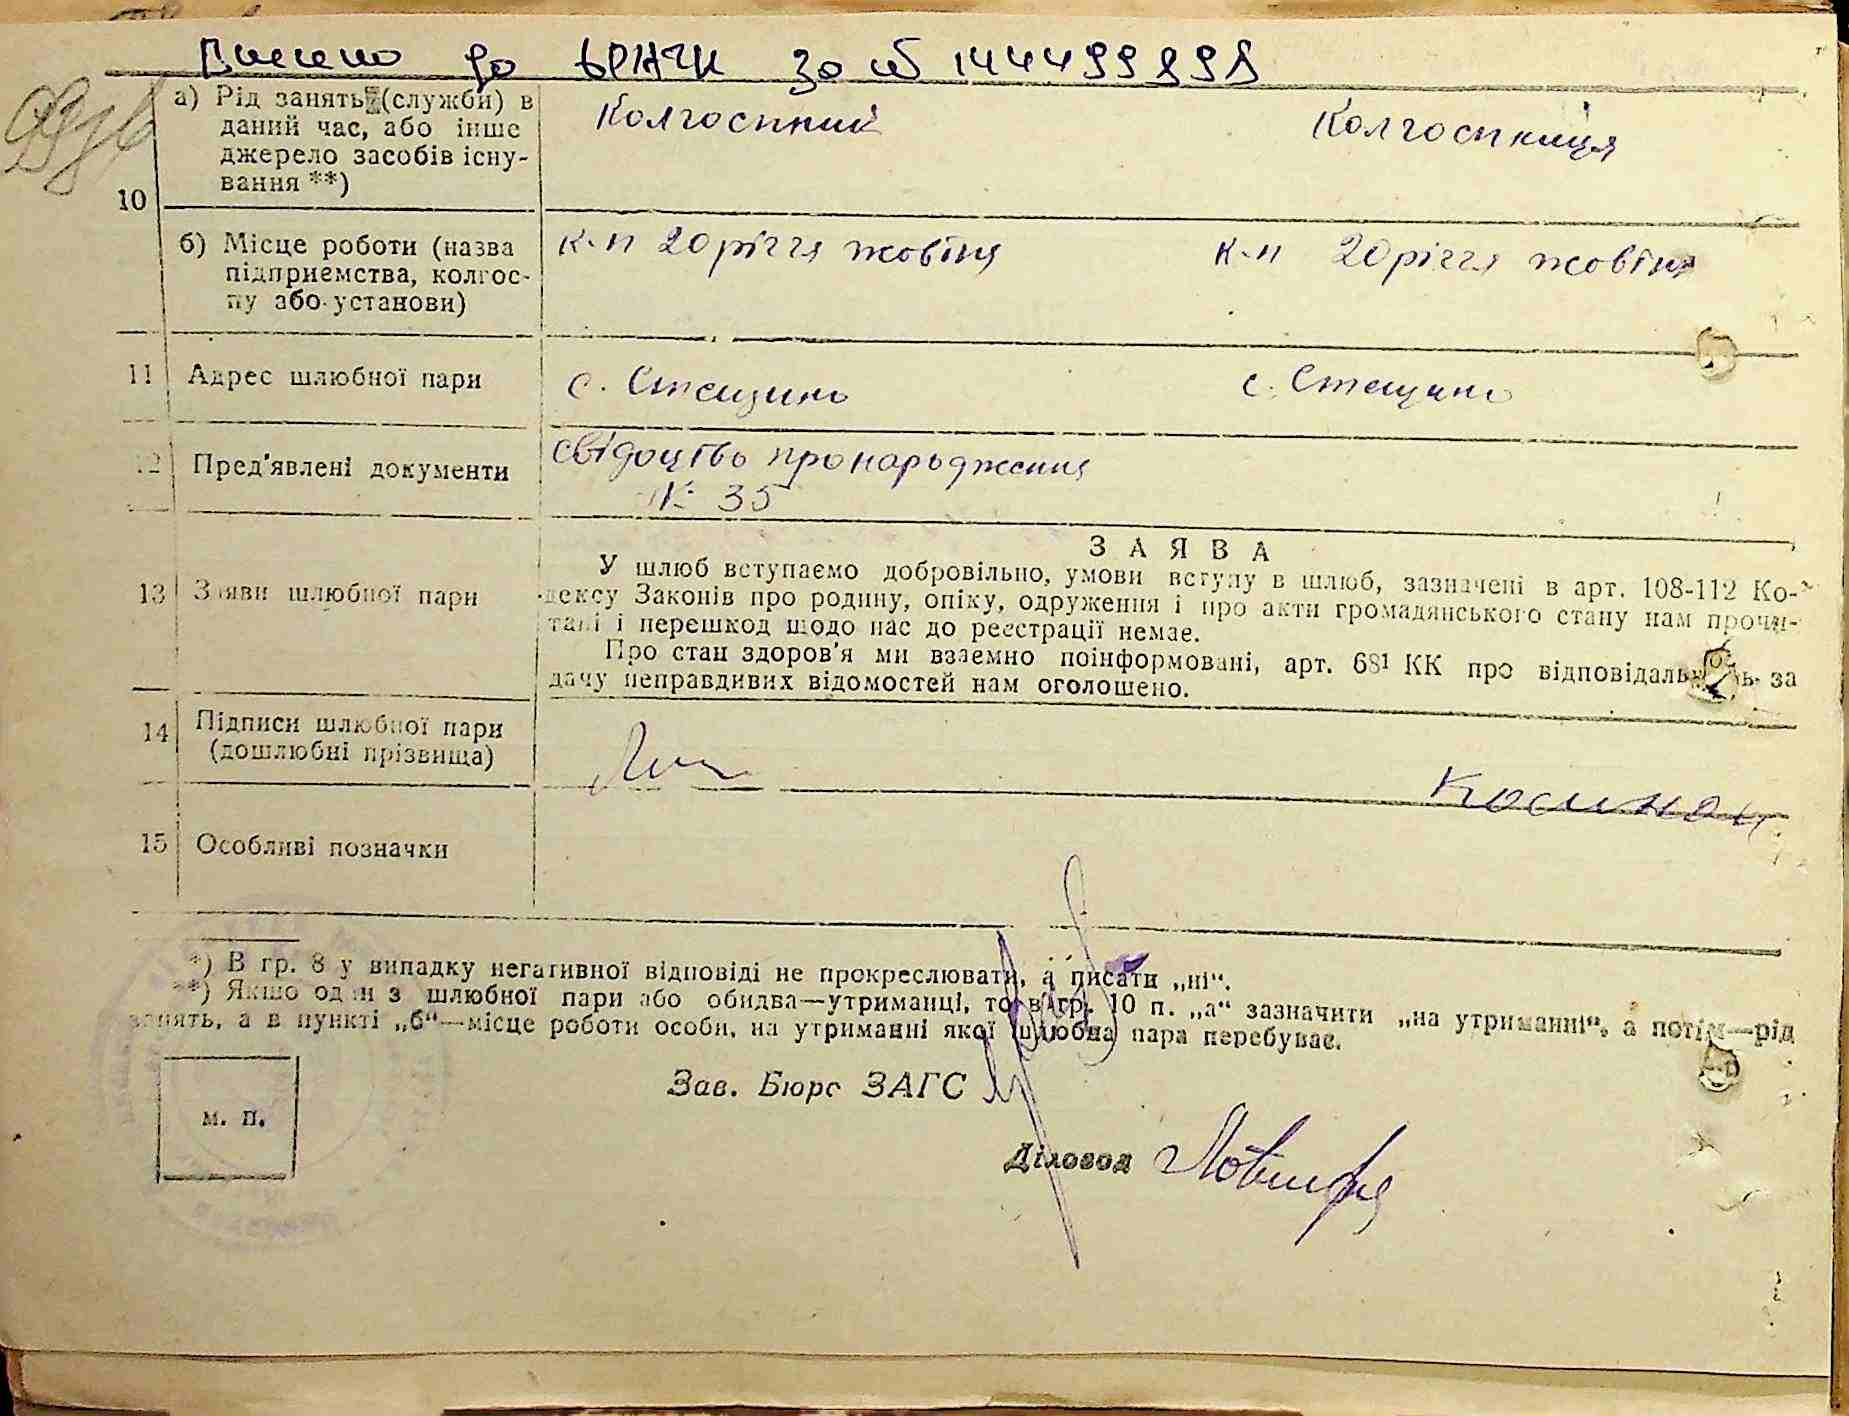 Внесено до ЕРНЧИ за № 14449989
10
а) Рід занять (служби) в
даний час, або інше
джерело засобів існу-
вання **)
Колгоспник
Колгоспниця
б) Місце роботи (назва
підприємства, колгос-
пу або установи)
к-п 20 річчя жовтня
к-п 20 річчя жовтня
11 Адрес шлюбної пари
с. Стецино
с. Стецино
12 Пред'явлені документи
свідоцтво про народження
№ 35
13 Заяви шлюбної пари
ЗАЯВА
У шлюб вступаємо добровільно, умови вступу в шлюб, зазначені в арт. 108-112 Ко-
дексу Законів про родину, опіку, одруження і про акти громадянського стану нам прочи-
тані і перешкод щодо нас до реєстрації немає.
Про стан здоров'я ми взаємно поінформовані, арт. 68¹ КК про відповідальність за
дачу неправдивих відомостей нам оголошено.
14 Підписи шлюбної пари
(дошлюбні прізвища)
15 Особливі позначки
*) В гр. 8 у випадку негативної відповіді не прокреслювати, а писати „ні“.
**) Якшо один з шлюбної пари або обидва—утриманці, то в гр. 10 п. „а“ зазначити „на утриманні“, а потім—рід
занять, а в пункті „б“—місце роботи особи, на утриманні якої шлюбна пара перебуває.
Зав. Бюро ЗАГС
м. п.
Діловод